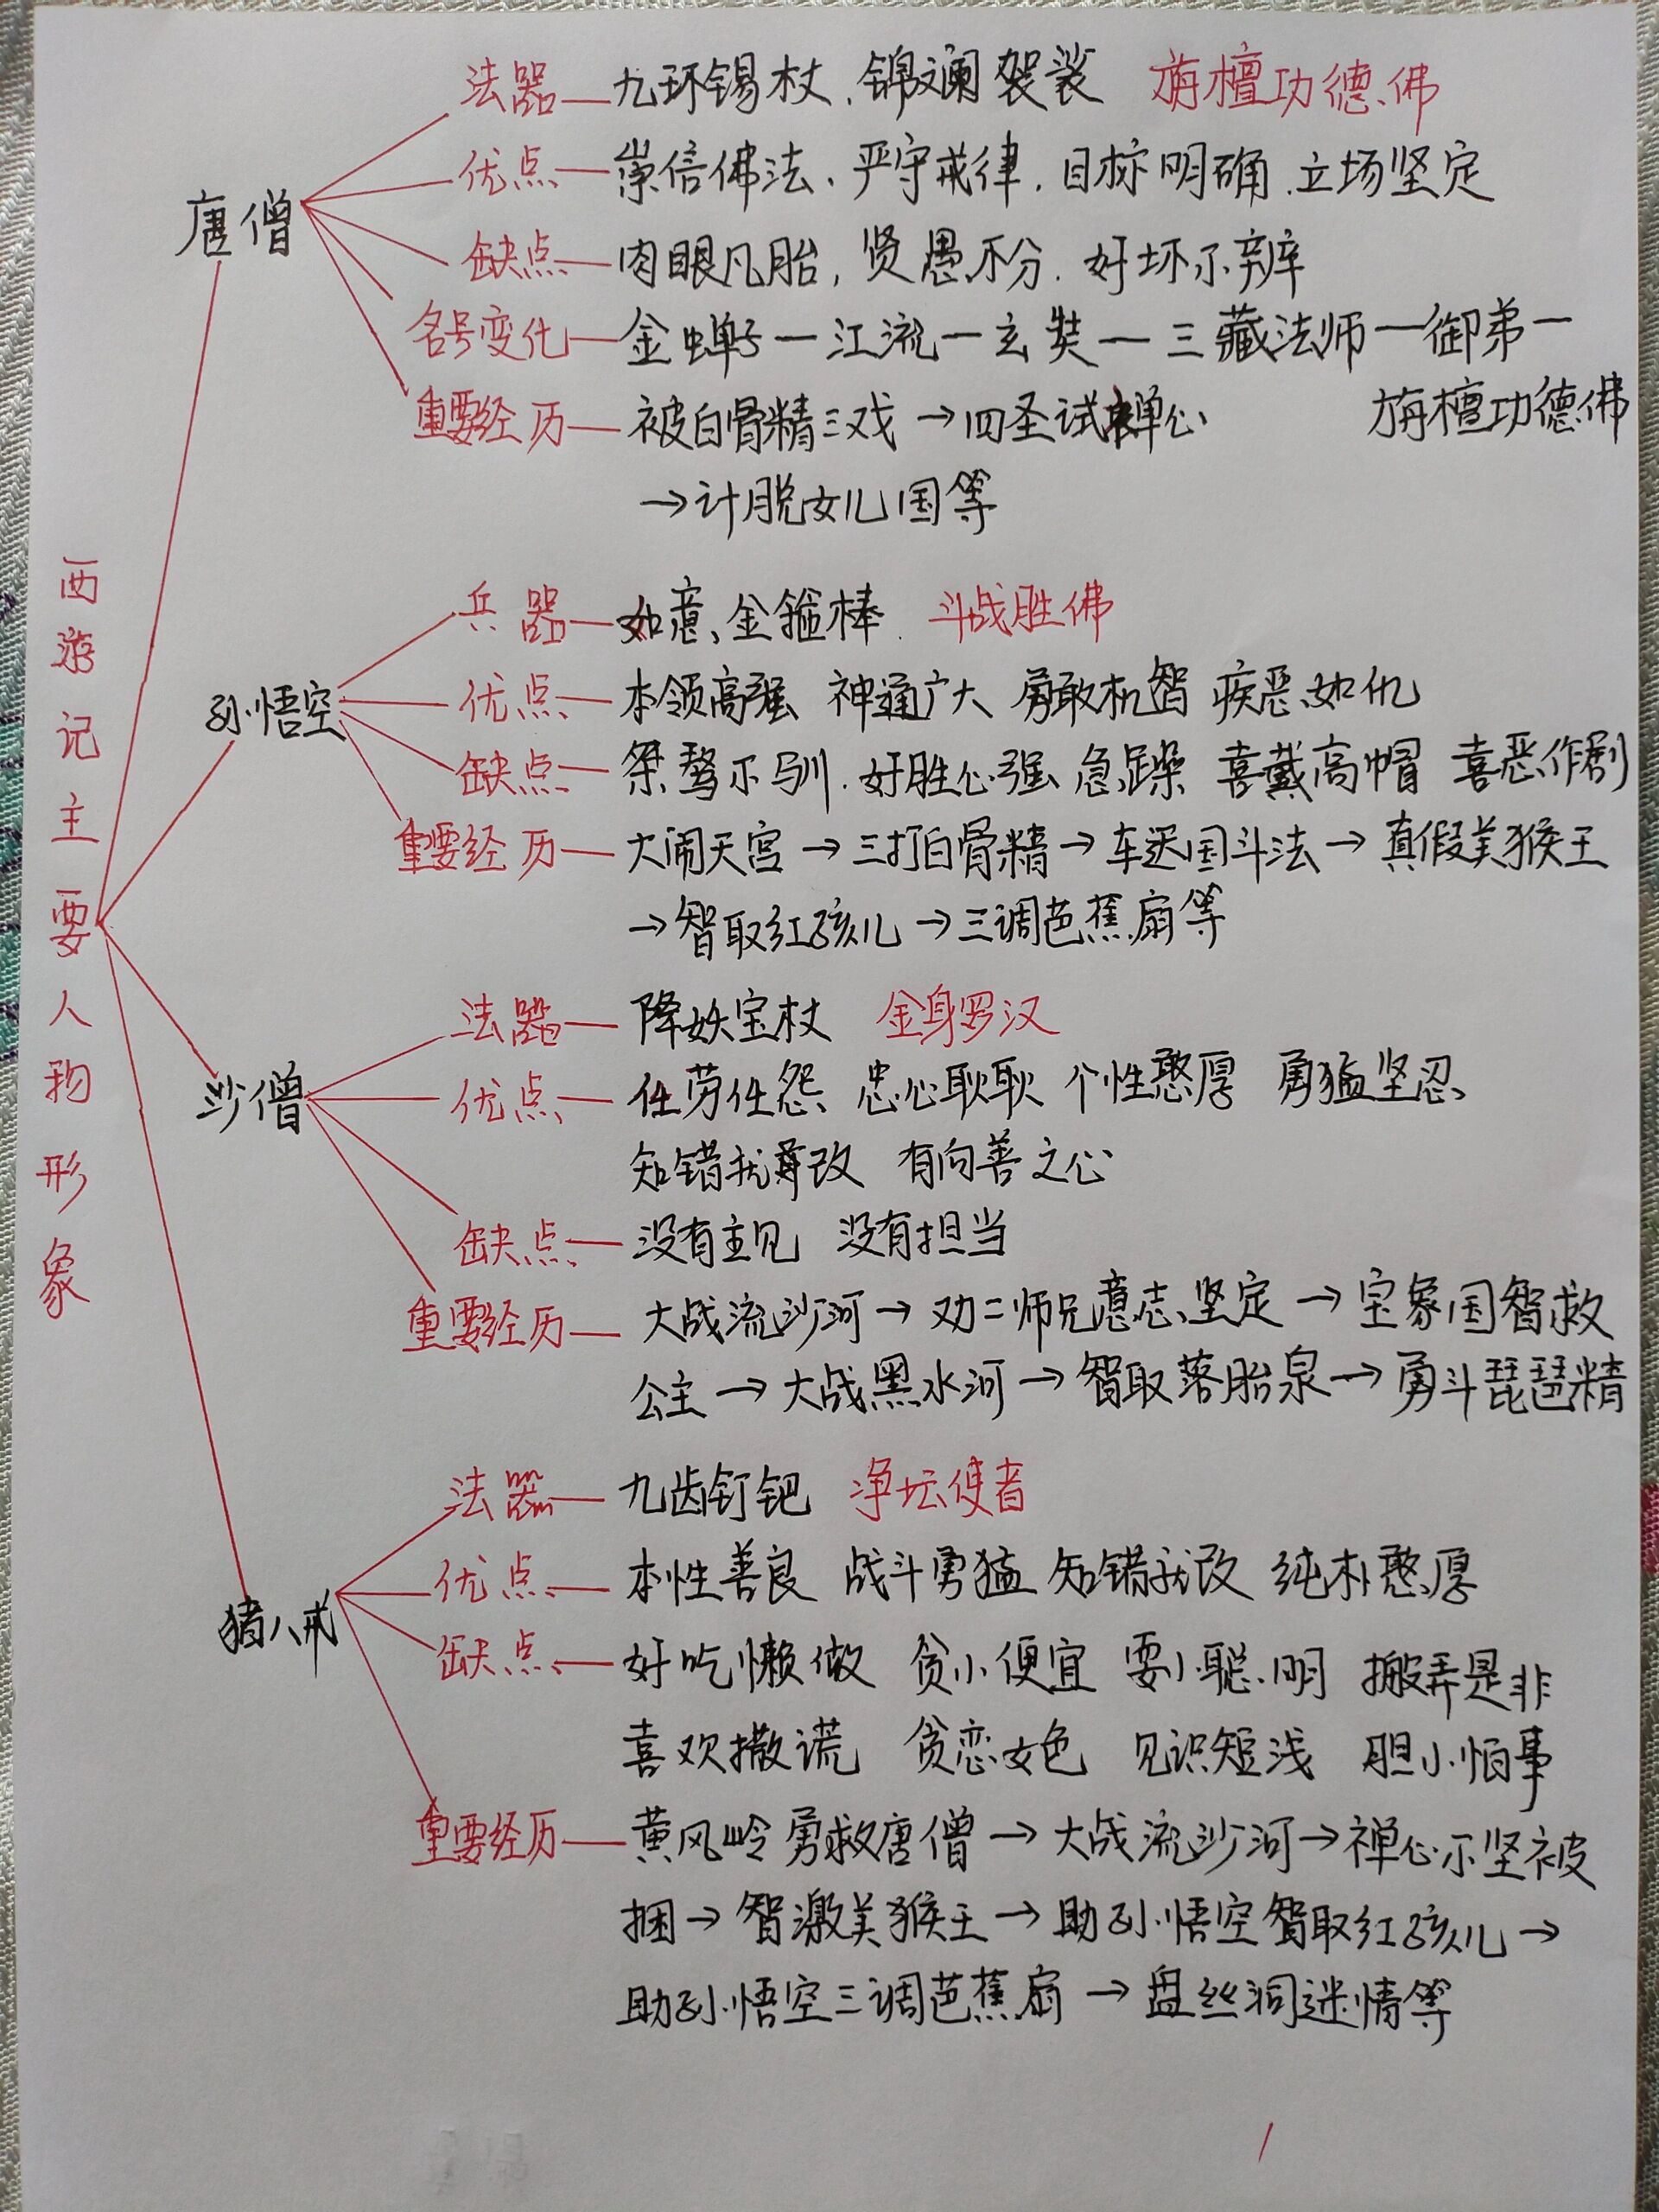 西游记主要人物形象
唐僧
法器 九环锡杖、锦斓袈裟 旃檀功德佛
优点 崇信佛法、严守戒律、目标明确、立场坚定
缺点 肉眼凡胎,贤愚不分、好坏不辨
名号变化 金蝉子—江流—玄奘—三藏法师—御弟—
旃檀功德佛
重要经历 被白骨精三戏→四圣试禅心
→计脱女儿国等
孙悟空
兵器 如意金箍棒 斗战胜佛
优点 本领高强 神通广大 勇敢机智 疾恶如仇
缺点 桀骜不驯、好胜心强 急躁 喜戴高帽 喜恶作剧
重要经历 大闹天宫→三打白骨精→车迟国斗法→真假美猴王
→智取红孩儿→三调芭蕉扇等
沙僧
法器 降妖宝杖 金身罗汉
优点 任劳任怨 忠心耿耿 个性憨厚 勇猛坚忍
知错就改 有向善之心
缺点 没有主见 没有担当
重要经历 大战流沙河→劝二师兄意志坚定→宝象国智救
公主→大战黑水河→智取落胎泉→勇斗琵琶精
猪八戒
法器 九齿钉钯 净坛使者
优点 本性善良 战斗勇猛 知错就改 纯朴憨厚
缺点 好吃懒做 贪小便宜 耍小聪明 搬弄是非
喜欢撒谎 贪恋女色 见识短浅 胆小怕事
重要经历 黄风岭勇救唐僧→大战流沙河→禅心不坚被
捆→智激美猴王→助孙悟空智取红孩儿→
助孙悟空三调芭蕉扇→盘丝洞迷情等